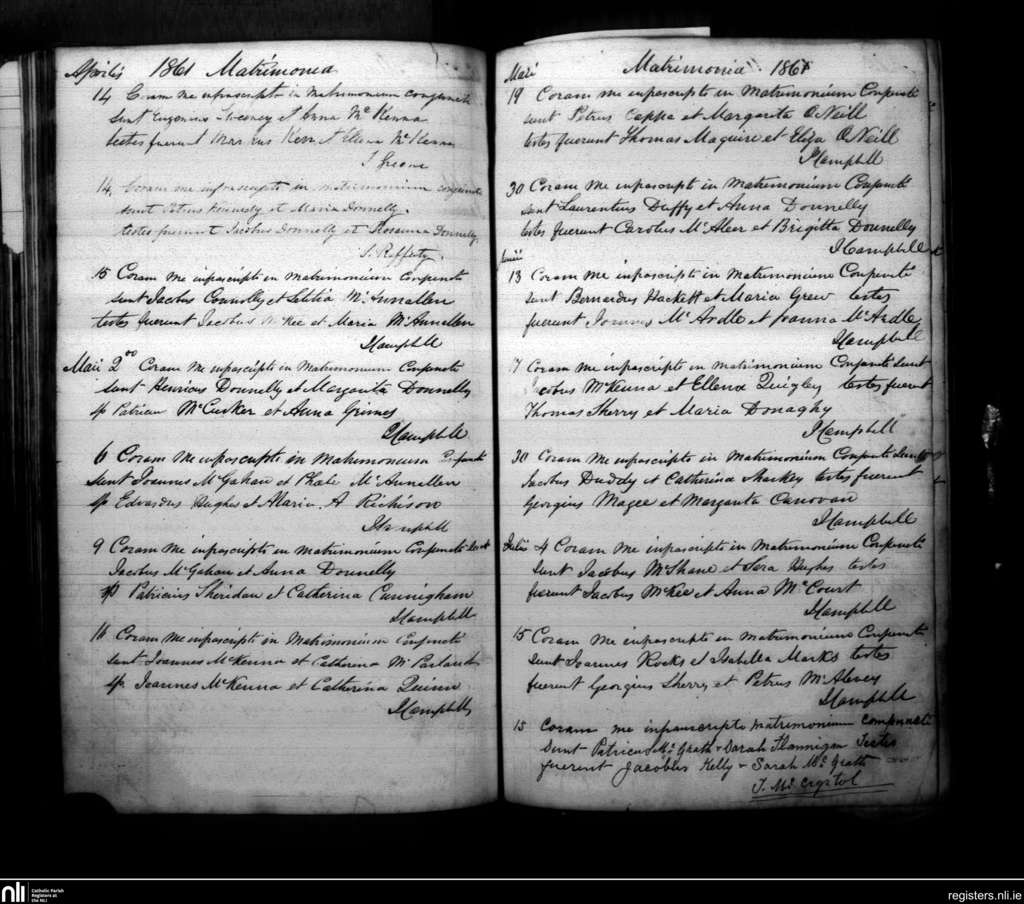 Aprilis 1861 Matrimonia
14 Coram me infrascripto in matrimonium conjuncti
sunt Eugenius Sweeney et Anna McKenna
testes fuerunt Marcus Kerr et Ellena McKenna
14, Coram me infrascripto in matrimonium conjuncti
sunt Petrus Kennedy et Maria Donnelly.
testes fuerunt Jacobus Donnelly et Rosanna Donnelly.
S. Rafferty
15 Coram Me infrascripto in Matrimonium Conjuncti
sunt Jacobus Connolly et Letitia McAnnallen
testes fuerunt Jacobus McKee et Maria McAnnallen
JCampbell
Maii 2 Coram Me infrascripto in Matrimonium Conjuncti
sunt Henricus Donnelly et Margarita Donnelly
sp Patrician McCusker et Anna Grimes
JCampbell
6 Coram Me infrascripto in Matrimonium Conjuncti
Sunt Joannes McGahan et McAnnallen
sp Edvardus Hughes et Maria. A Richison
JCampbell
9 Coram Me infrascripto in Matrimonium Conjuncti sunt
Jacobus McGahan et Anna Donnelly
sp Patricius Sheridan et Catherina Cunnigham
JCampbell
16 Coram Me infrascripto in Matrimonium Conjuncti
sunt Joannes McKenna et Catherina McParland
sp. Joannes McKenna et Catherina Quinn
JCampbell
Maii Matrimonia 1861
19 Coram Me infrascripto in Matrimonium Conjuncti
sunt Petrus Cappa et Margarita O'Neill
testes fuerunt Thomas Maguire et Eliza O'Neill
JCampbell
30 Coram Me infrascripto in Matrimonium Conjuncti
sunt Laurentius Duffy et Anna Donnelly
testes fuerunt Carolus McAleer et Brigitta Donnelly
JCampbell
Junii
13 Coram Me infrascripto in Matrimonium Conjuncti
sunt Bernardus Hackett et Maria Grew testes
fuerunt Joannes McArdle et Joanna McArdle
JCampbell
17 Coram Me infrascripto in Matrimonium Conjuncti sunt
Jacobus McKenna et Ellena Quigley testes fuerunt
Thomas Sherry et Maria Donaghy
JCampbell
30 Coram Me infrascripto in Matrimonium Conjuncti sunt
Jacobus Duddy et Catherina Sharkey testes fuerunt
Georgius Magee et Margarita Canovan
JCampbell
Julii 4 Coram Me infrascripto in Matrimonium Conjuncti
sunt Jacobus McShane et Sara Hughes testes
fuerunt Jacobus McKee et Anna McCourt
JCampbell
15 Coram Me infrascripto in Matrimonium Conjuncti
sunt Joannes Rocks et Isabella Marks testes
fuerunt Georgius Sherry et Petrus McAlevey
JCampbell
15 Coram me infrascripto matrimonium conjuncti
Sunt Patricus McGrath & Sarah Flannigan Testes
fuerunt Jacobus Kelly & Sarah McGrath
J. Mc. Crystol
nli Catholic Parish
Registers at
the NLI
registers.nli.ie